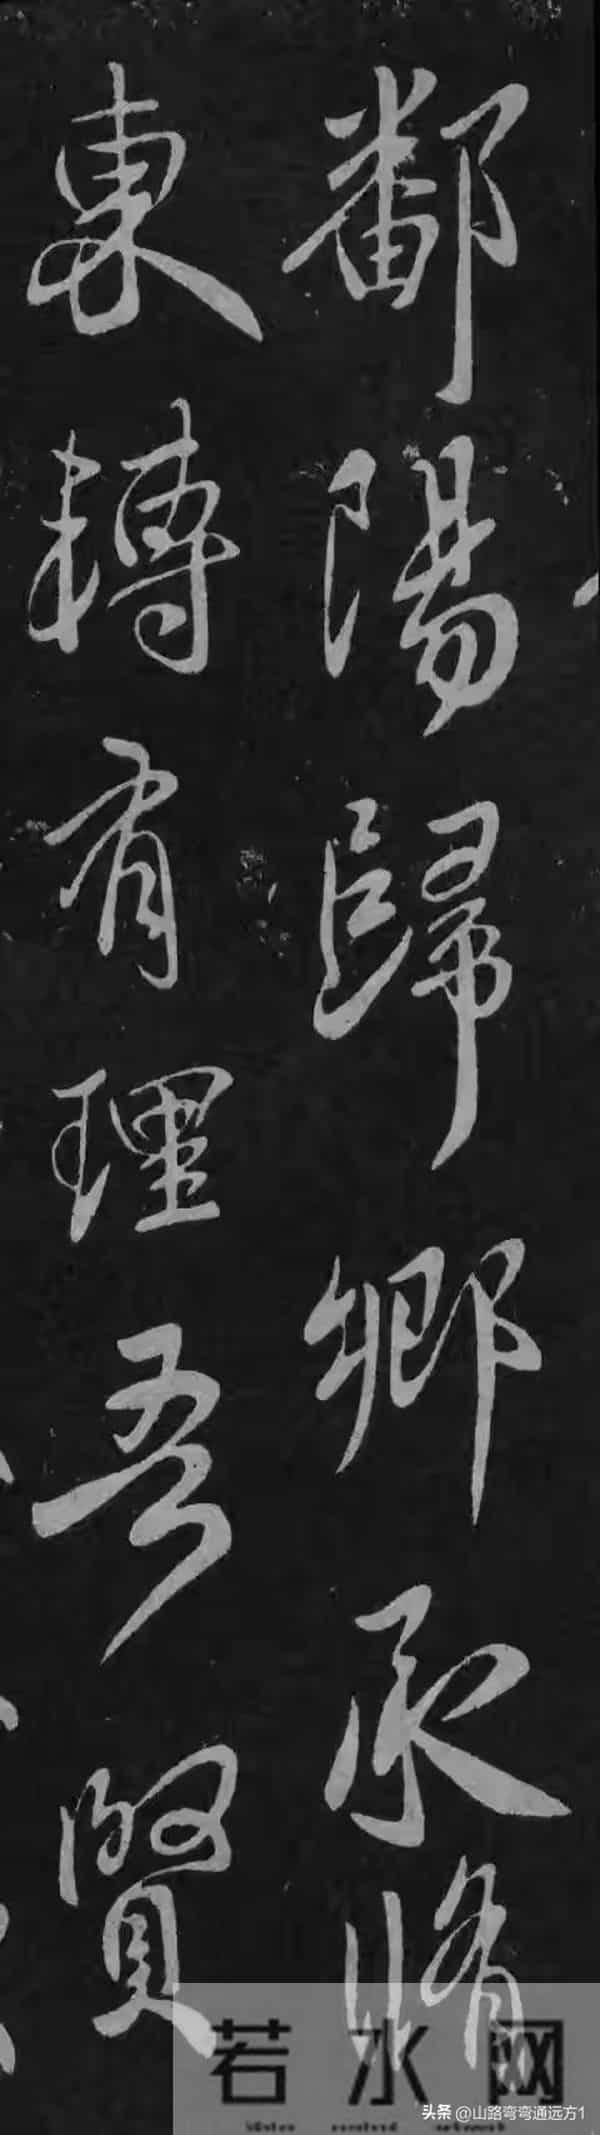 鄱陽歸鄉承脩
東轉有理吾賢
若水网
头条 @山路弯弯通远方1